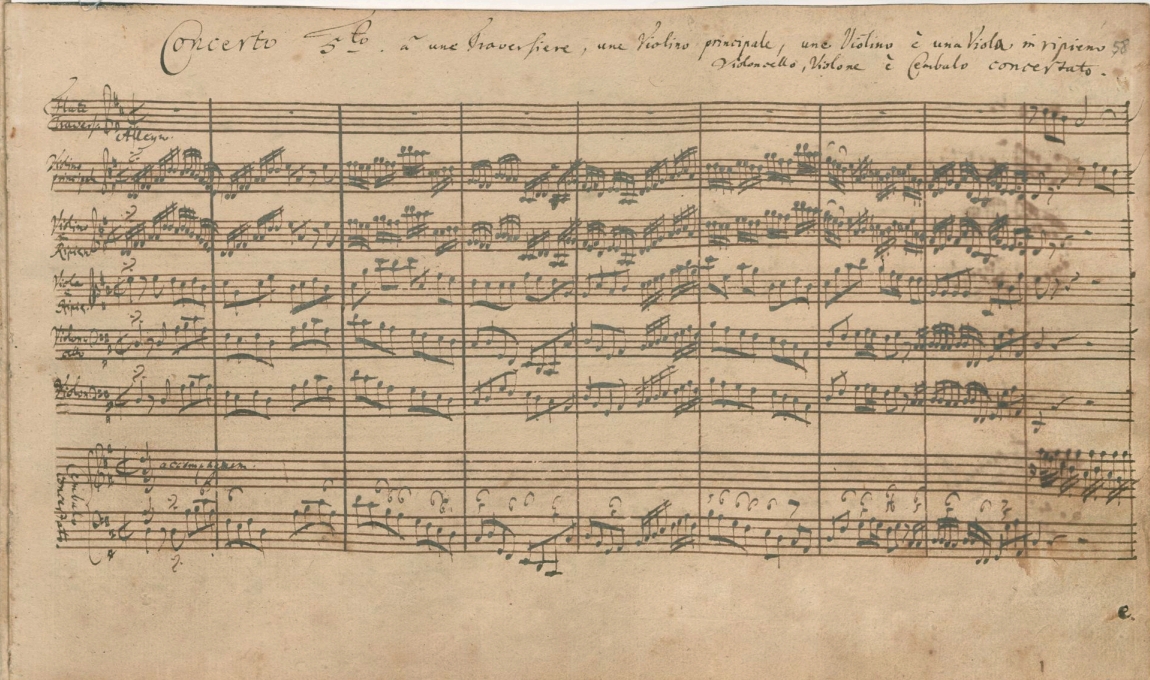 Concerto 5to. à une Traversiere, une Violino principale, une Violino è una Viola in ripieno
58
Violoncello, Violone è Cembalo concertato.
Flute
Travers.
Allegro.
Violino
principale
Violino
Ripieno
Viola
Ripie.
Violonc
ello
Violone
accompanem.
Cembalo
concertato
e.